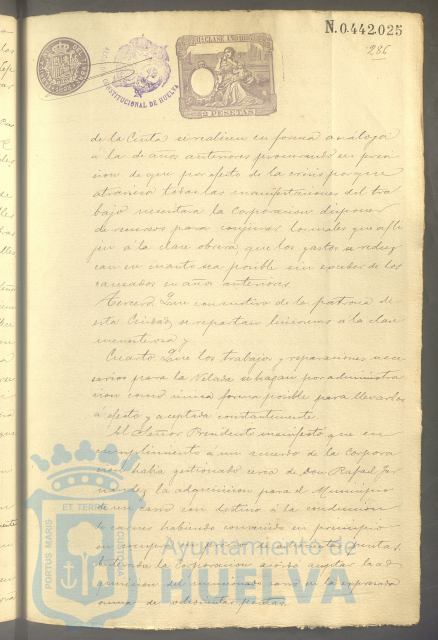 N.0.442.025
286
11ª CLASE
CONSTITUCIONAL DE HUELVA
2 PESETAS
de la Cinta se realicen en forma análoga
á la de años anteriores procurando en previ
sion de que por efecto de la crisis por que
atraviesa todas las manifestaciones del tra
bajo necesitara la Corporacion disponer
de recursos para conjurar los males que afli
jen á la clase obrera que los gastos se reduz
can en cuanto sea posible sin exceder de los
causados en años anteriores
Tercero. Que con motivo de la patrona de
esta Ciudad se repartan limosnas á la clase
menesterosa y
Cuarto. Que los trabajos y reparaciones nece
sarios para la Velada se hagan por administra
cion como única forma posible para llevarlos
á efecto y aceptada constantemente.
El Señor Presidente manifestó que en
cumplimiento á un acuerdo de la Corpora
cion habia gestionado cerca de Don Rafael Fer
nandez la adquisicion para el Municipio
de un carro con destino á la conduccion
de carnes habiendo convenido en principio
en
pesetas
la Corporacion aceptar la ad
quisicion del mencionado carro en la expresada
suma de pesetas.
PORTUS MARIS ET TERRAE CUSTODIA
Ayuntamiento de
HUELVA